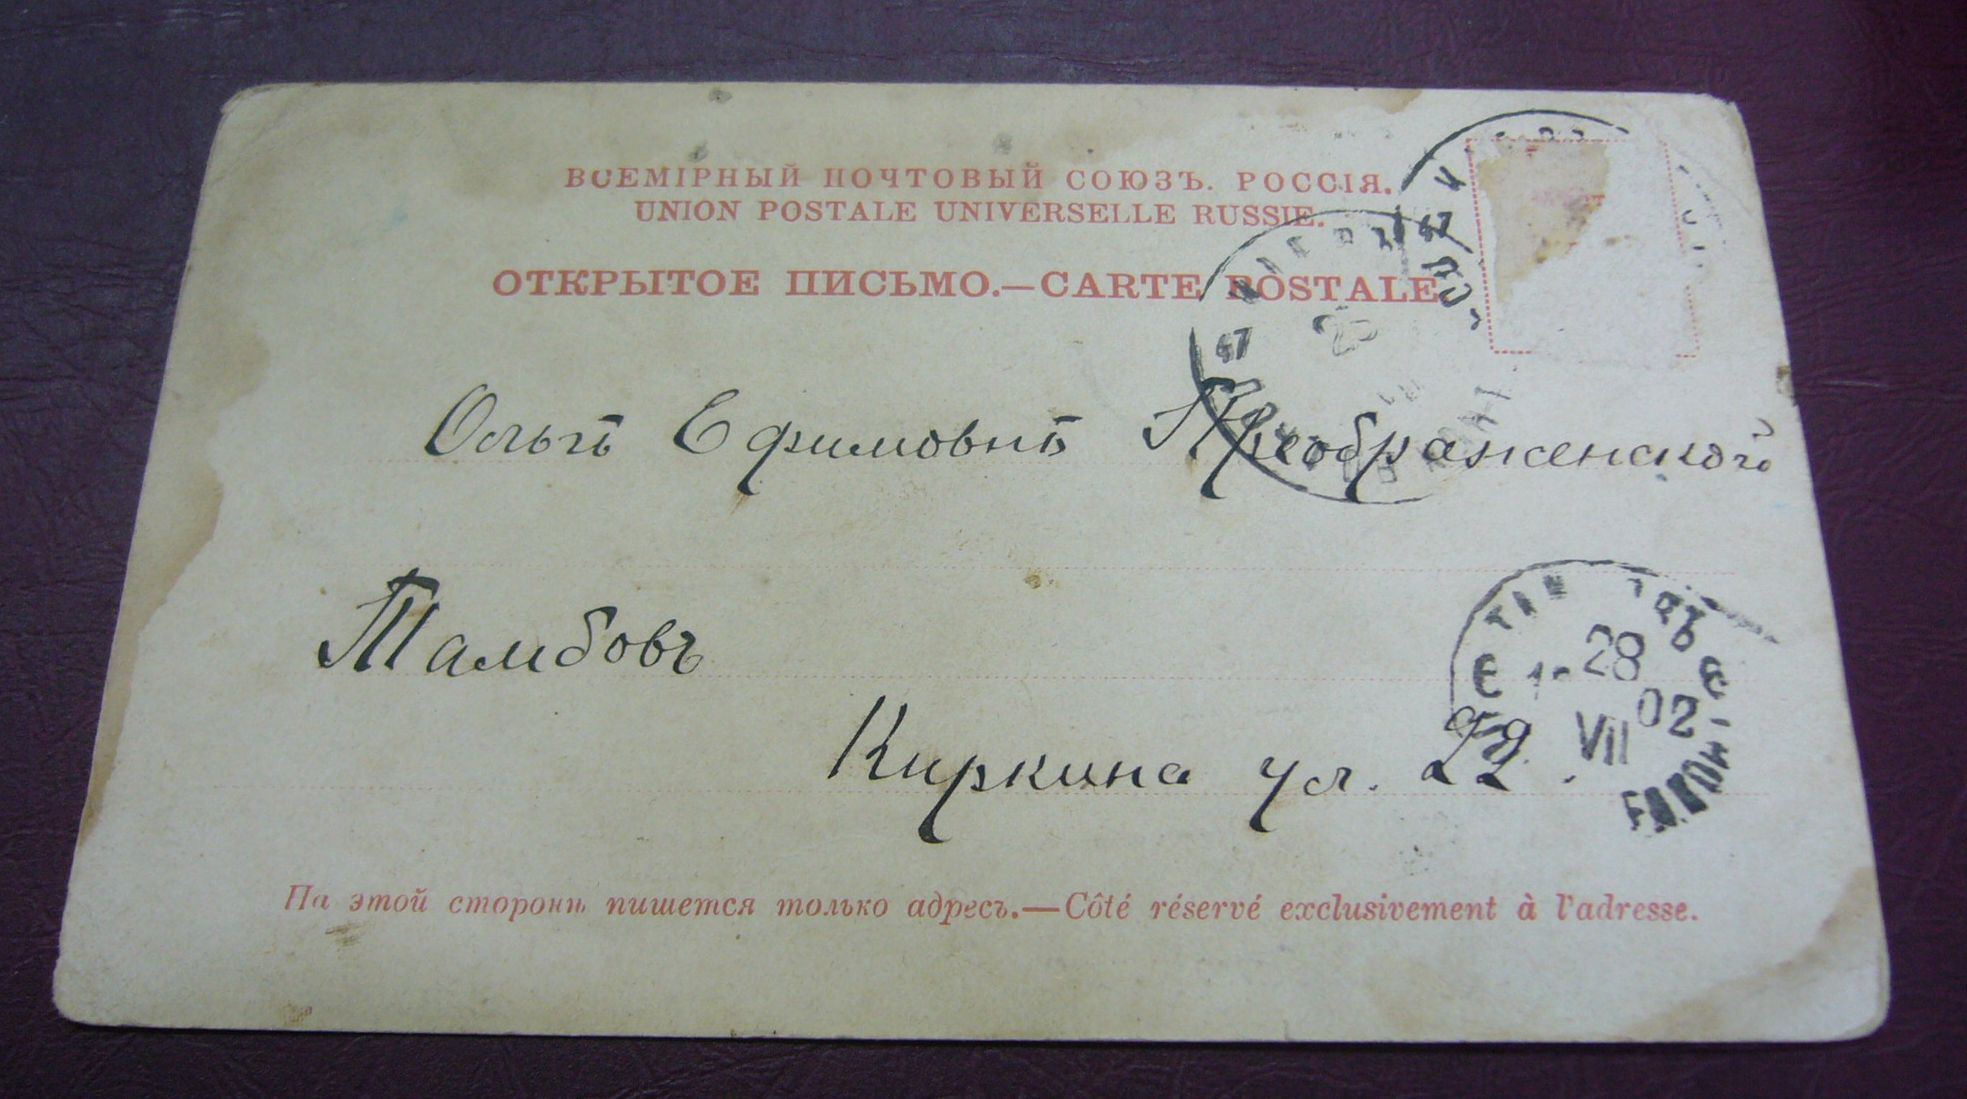 ВСЕМІРНЫЙ ПОЧТОВЫЙ СОЮЗЪ. РОССІЯ.
UNION POSTALE UNIVERSELLE RUSSIE.
ОТКРЫТОЕ ПИСЬМО.—CARTE POSTALE
47
47
25
Ольгѣ Ефимовнѣ Преображенской
Тамбовъ
28
02
VII
Киркина ул. 22.
На этой сторонѣ пишется только адресъ.—Côté réservé exclusivement à l'adresse.